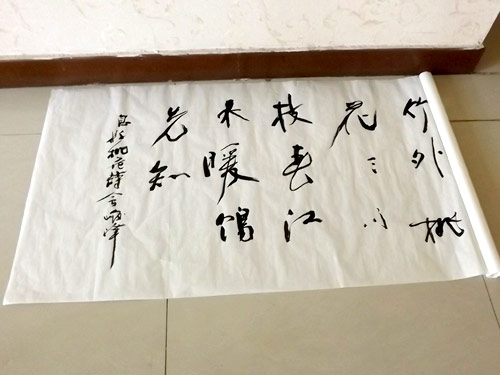 竹外桃
花三两
枝春江
水暖鸭
先知
桃花诗